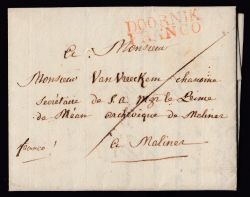 DOORNIK
FRANCO
A Monsieur
Monsieur Van Vreckem chanoine
Secrétaire de S. A. Mgr le Prince
de Méan archevêque de Malines
franco!
à Malines